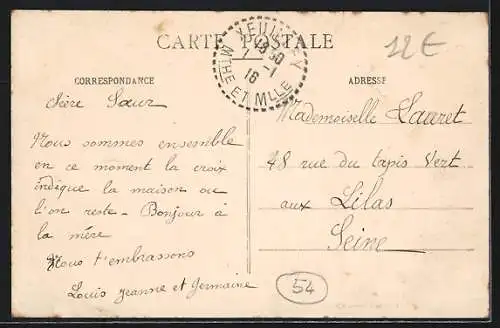 CARTE POSTALE
XEUILLEY
18 30
7 - 1
16
MTHE ET MLLE
12 €
CORRESPONDANCE
ADRESSE
Chère Sœur
Nous sommes ensemble
en ce moment la croix
indique la maison ou
l'on reste - Bonjour à
la mère
Nous t'embrassons
Louis Jeanne et Germaine
Mademoiselle Lauret
48 rue du tapis vert
aux Lilas
Seine
54